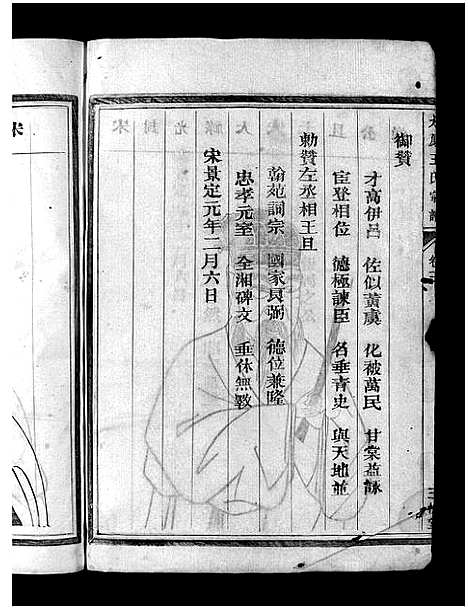 御贊
才高伊呂 佐似黃虞 化被萬民 甘棠益詠
宦登相位 德極諫臣 名垂青史 與天地並
勅贊左丞相王旦
翰苑詞宗 國家良弼 德位兼隆
忠孝元室 全湘碑文 垂休無斁
宋景定元年二月六日
宋